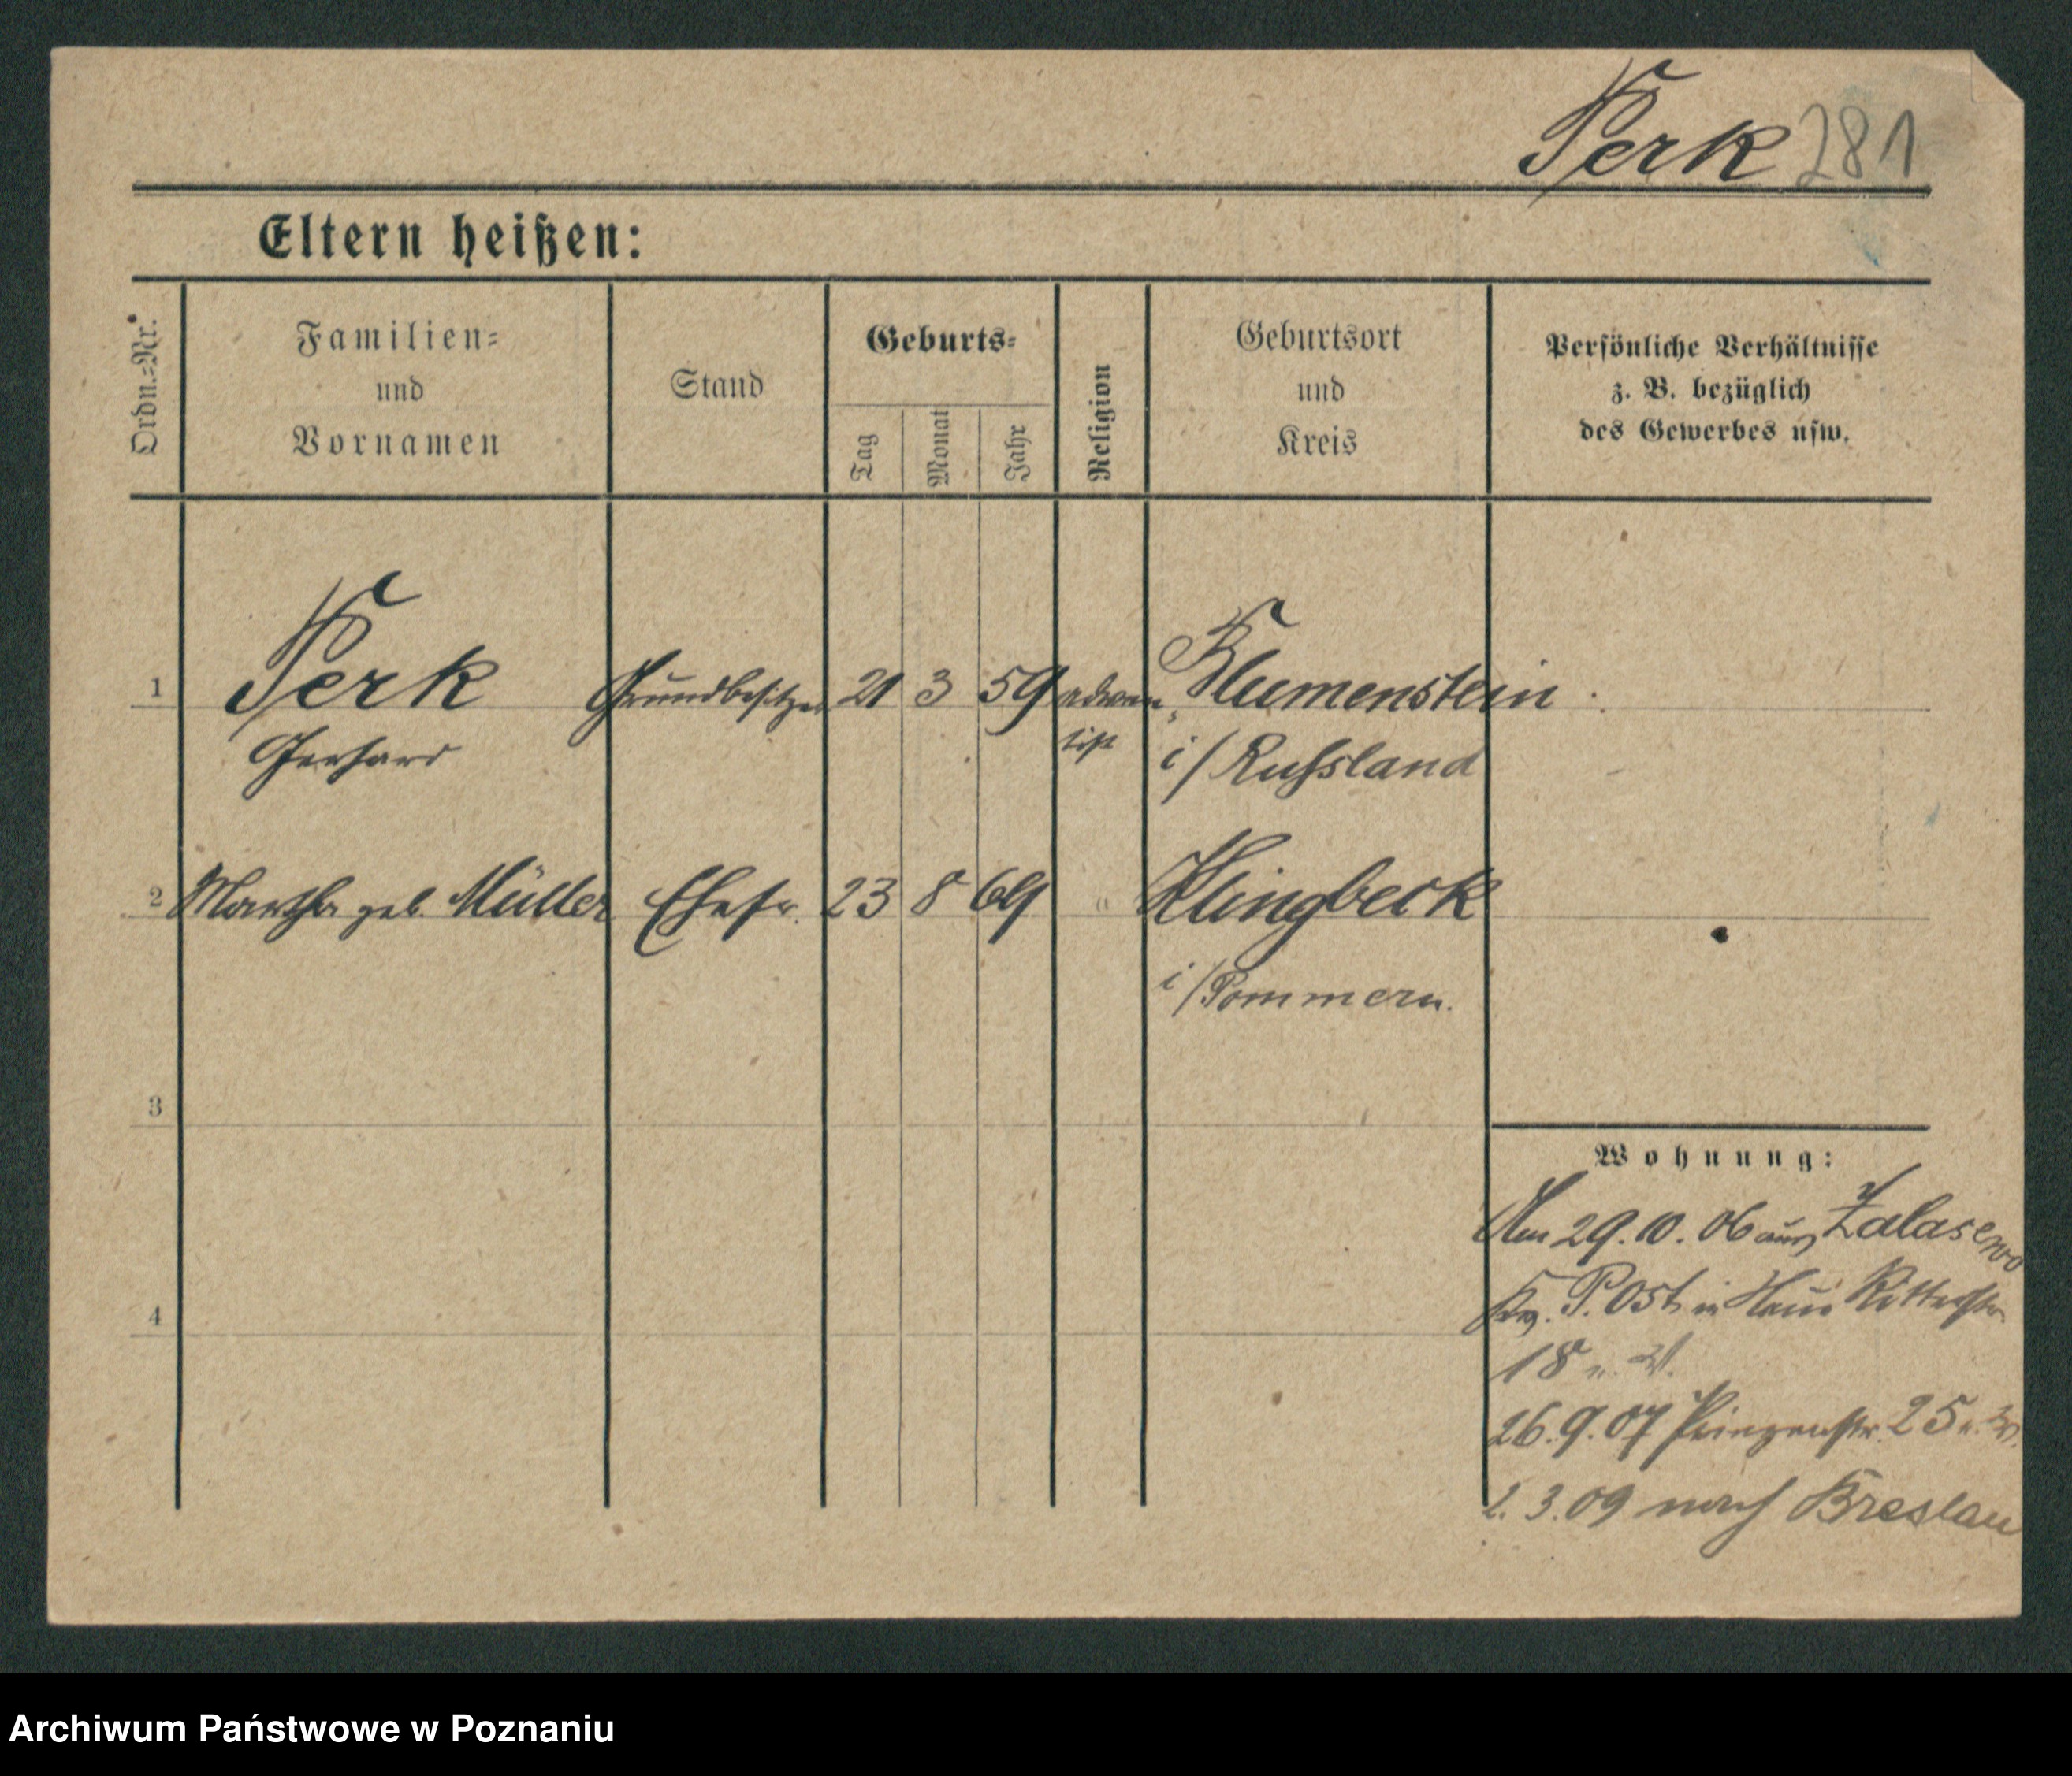 Perk 281
Eltern heißen:
Ordn.-Nr.
Familien-
und
Vornamen
Stand
Geburts-
Tag
Monat
Jahr
Religion
Geburtsort
und
Kreis
Persönliche Verhältnisse
z. B. bezüglich
des Gewerbes usw.
1 Perk Grundbesitzer 21 3 59 adven- Blumenstein
Gerhard tist i/Russland
2 Martha geb. Müller Ehefr. 23 8 69 " Klingbeck
i/Pommern.
3
4
Wohnung:
Am 29.10.06 aus Zalasewo
Kr. P. Ost in Haus Ritterstr
18
26.9.07 Prinzenstr. 25
2.3.09 nach Breslau
Archiwum Państwowe w Poznaniu